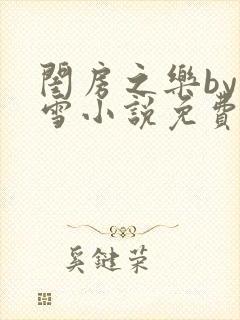 閨房之樂by
雪小說免費
奚鍵荣